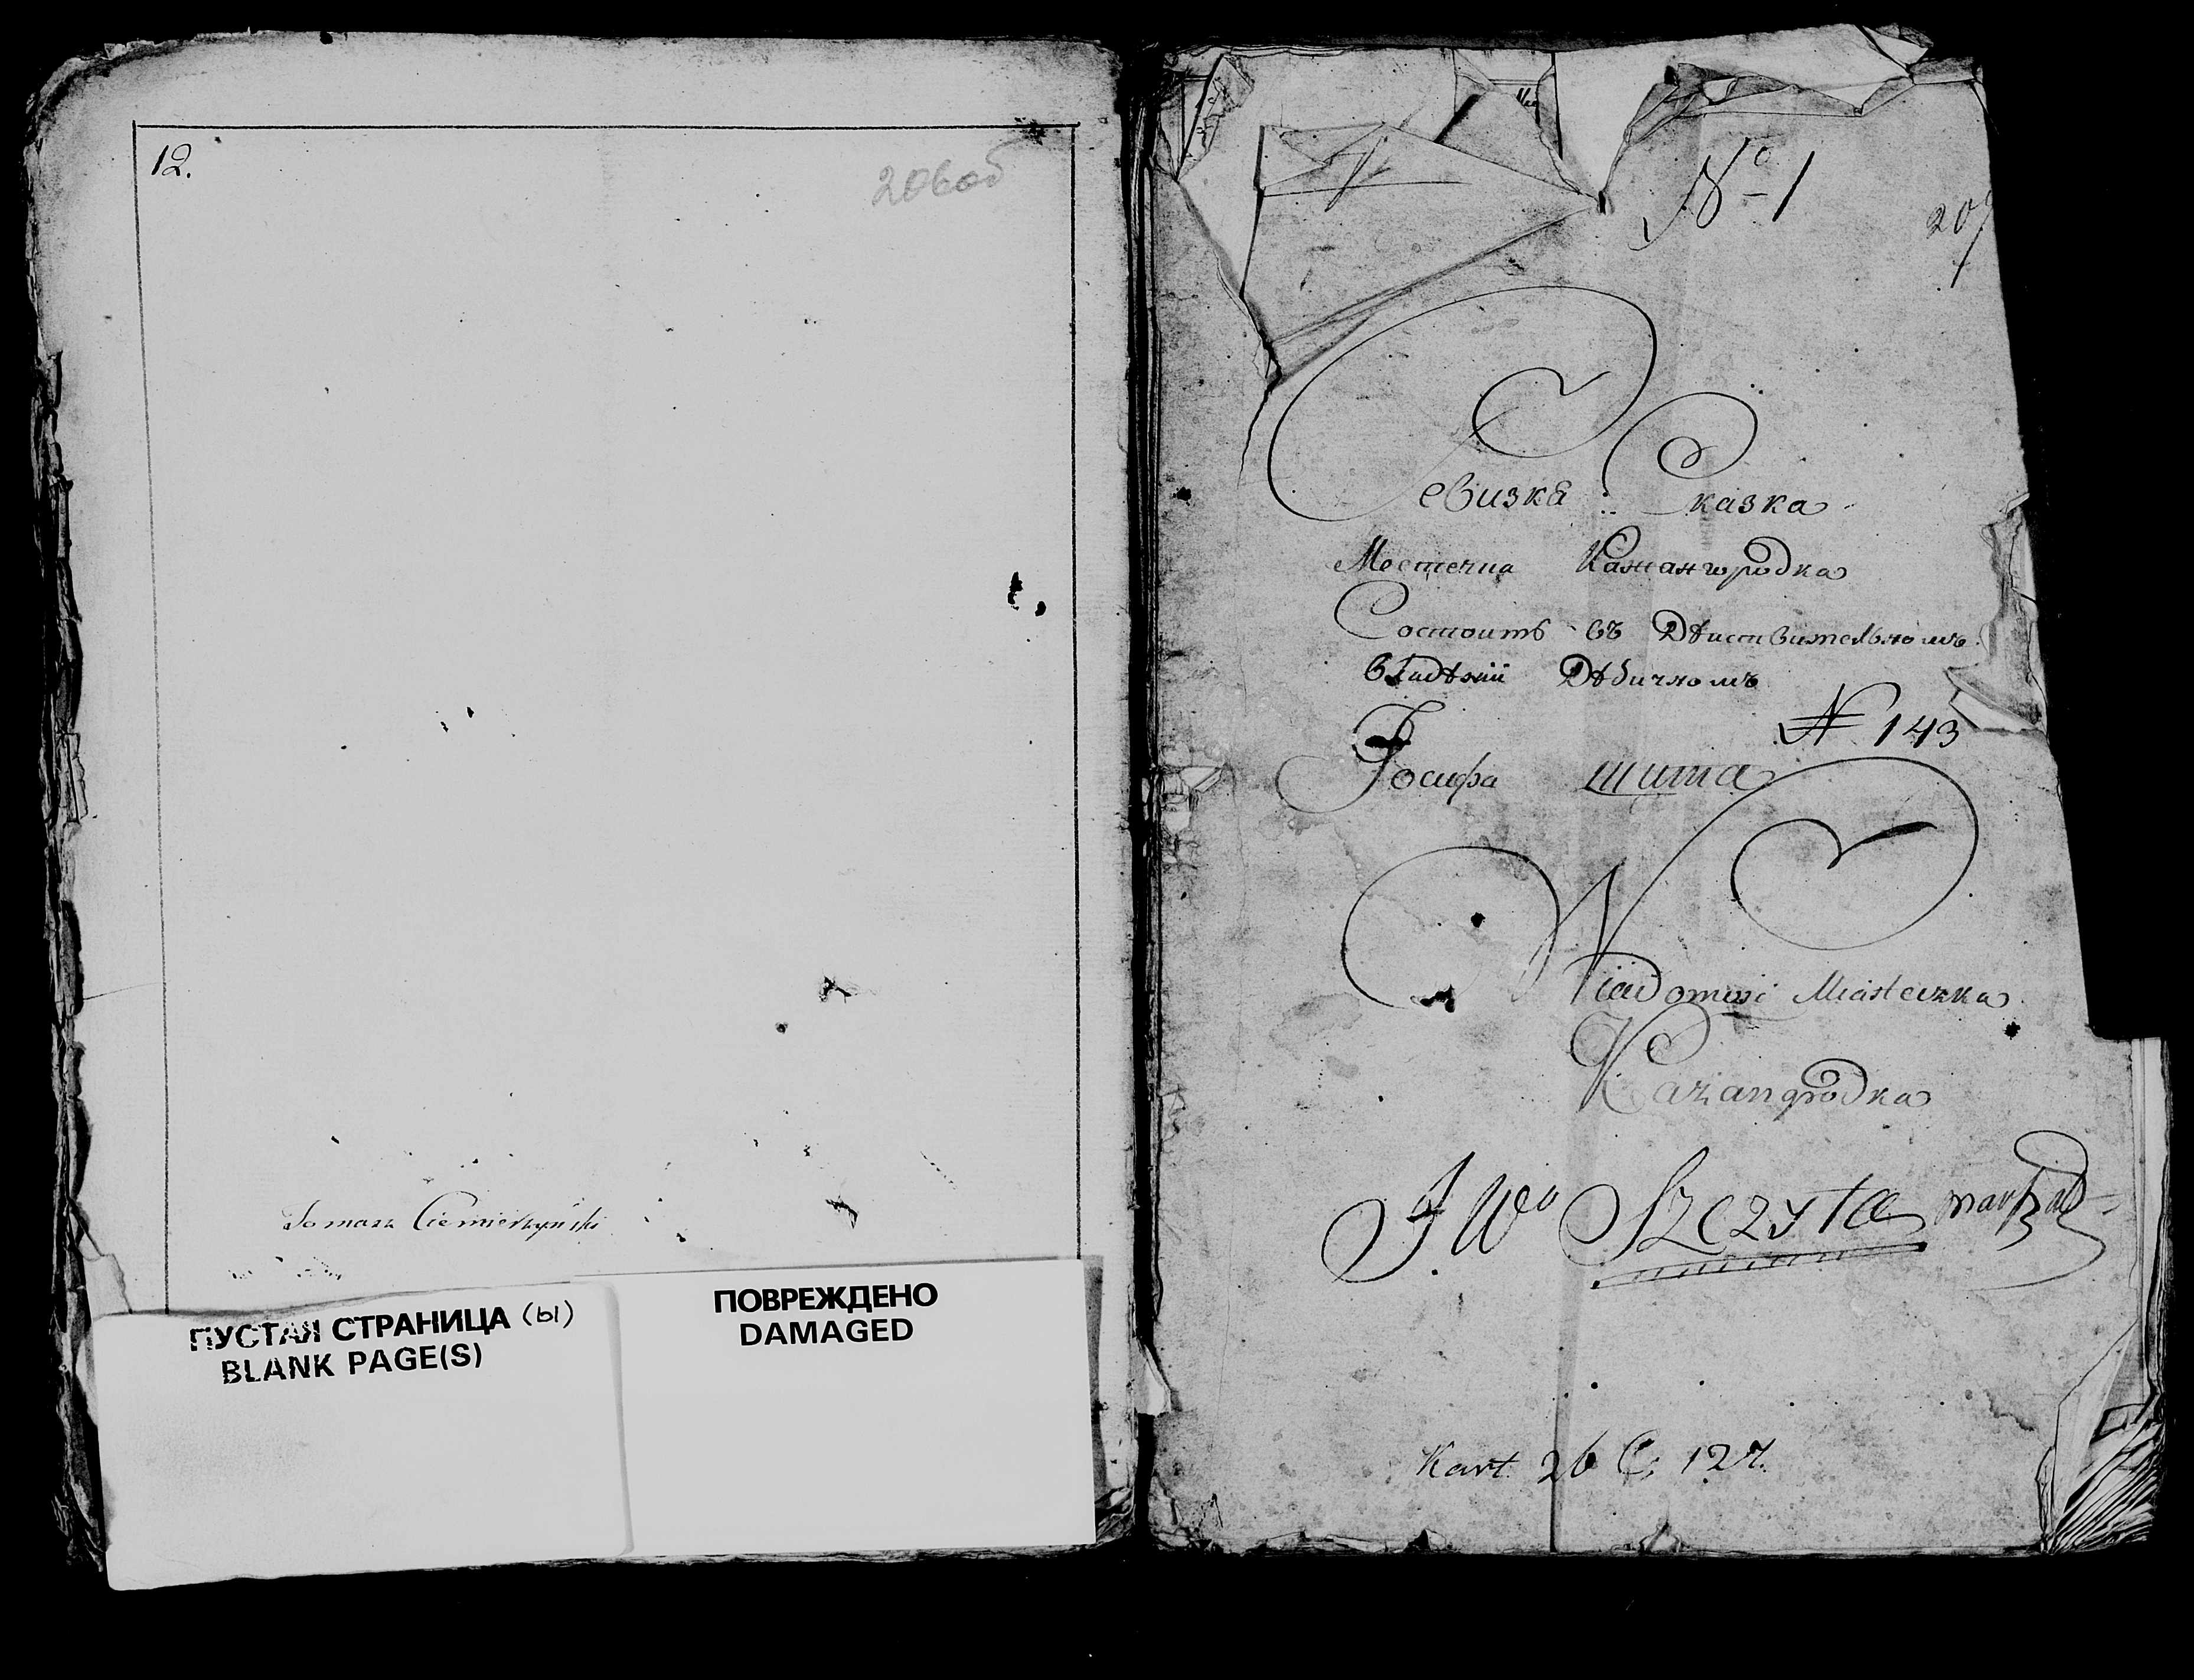 12.
206об
Tomasz Ciemierzyński
ПУСТАЯ СТРАНИЦА (ы)
BLANK PAGE(S)
ПОВРЕЖДЕНО
DAMAGED
No 1
207
Ревизкя Сказка
Местечка Кажангородка
Состоитъ въ Дѣиствительномъ
Владѣнiи Дѣдичномъ
N 143
Иосифа Щита
Wiadomość Miasteczka
Każangródka
J Wo Szczytta
Kart 26 C. 127.